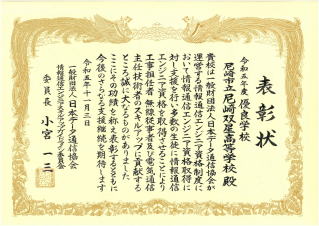 表彰状
令和五年度 優良学校
尼崎市立尼崎双星高等学校 殿
貴校は一般財団法人日本データ通信協会が
運営する情報通信エンジニア資格制度に
おいて情報通信エンジニア資格取得に
対し支援を行い多数の生徒に情報通信
エンジニア資格を取得させることにより
工事担任者 無線従事者及び電気通信
主任技術者のスキルアップに貢献する
ところ誠に大なるものがありました
ここにその功績を称え表彰するとともに
今後のさらなる支援継続を期待します
令和五年十一月三日
一般財団法人日本データ通信協会
情報通信エンジニアスキルアップガイドライン委員会
委員長 小宮 一三